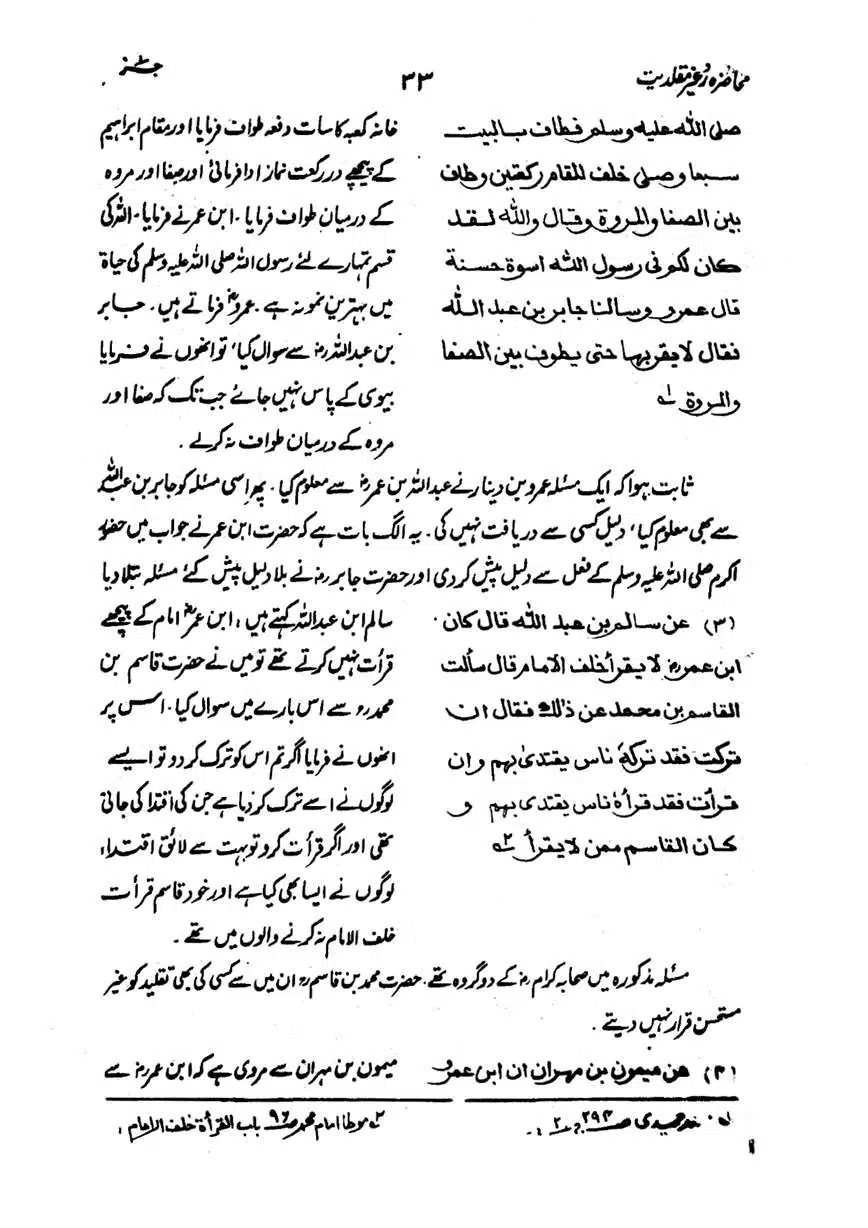 محاضرہ ردّ غیر مقلدیت
۳۳
صلی اللہ علیہ وسلم فطاف بالبیت
سبعا وصلی خلف المقام رکعتین وطاف
بین الصفا والمروۃ وقال واللہ لقد
کان لکم فی رسول اللہ اسوۃ حسنۃ
قال عمرو وسالنا جابر بن عبد اللہ
فقال لا یقربھا حتی یطوف بین الصفا
والمروۃ ۱ہ
خانہ کعبہ کا سات دفعہ طواف فرمایا اور مقام ابراہیم
کے پیچھے دو رکعت نماز ادا فرمائی اور صفا اور مروہ
کے درمیان طواف فرمایا۔ ابن عمر نے فرمایا۔ اللہ کی
قسم تمہارے لئے رسول اللہ صلی اللہ علیہ وسلم کی حیاۃ
میں بہترین نمونہ ہے۔ عمروؓ فرماتے ہیں۔ جابر
بن عبداللہ رضؓ سے سوال کیا، تو انھوں نے فرمایا
بیوی کے پاس نہیں جائے جب تک کہ صفا اور
مروہ کے درمیان طواف نہ کرلے۔
ثابت ہوا کہ ایک مسئلہ عمرو بن دینار نے عبداللہ بن عمرؓ سے معلوم کیا۔ پھر اسی مسئلہ کو جابر بن عبداللہ
سے بھی معلوم کیا، دلیل کسی سے دریافت نہیں کی۔ یہ الگ بات ہے کہ حضرت ابن عمر نے جواب میں حضور
اکرم صلی اللہ علیہ وسلم کے فعل سے دلیل پیش کر دی اور حضرت جابر رضؓ نے بلا دلیل پیش کئے مسئلہ بتلا دیا
(۳) عن سالم بن عبد اللہ قال کان
ابن عمر رضؓ لا یقرأ خلف الامام قال سألت
القاسم بن محمد عن ذالک فقال ان
ترکت فقد ترکہٗ ناس یقتدیٰ بہم وان
قرأت فقد قرأہٗ ناس یقتدیٰ بہم و
کان القاسم ممن لا یقرأ ۲ہ
سالم ابن عبداللہ کہتے ہیں، ابن عمرؓ امام کے پیچھے
قرأت نہیں کرتے تھے تو میں نے حضرت قاسم بن
محمد رہ سے اس بارے میں سوال کیا۔ اس پر
انھوں نے فرمایا اگر تم اس کو ترک کر دو تو ایسے
لوگوں نے اسے ترک کر دیا ہے جن کی اقتدا کی جاتی
تھی اور اگر قرأت کرو تو بہت سے لائق اقتداء
لوگوں نے ایسا بھی کیا ہے اور خود قاسم قرأت
خلف الامام نہ کرنے والوں میں تھے۔
مسئلہ مذکورہ میں صحابہ کرام رضؓ کے دو گروہ تھے۔ حضرت محمد بن قاسم رہ ان میں سے کسی کی بھی تقلید کو غیر
مستحسن قرار نہیں دیتے۔
(۴) عن میمون بن مہران ان ابن عمرؓ
میمون بن مہران سے مروی ہے کہ ابن عمر رضؓ سے
حمیدی ص۲۹۳ ج۲
۲ موطا امام محمد ص۹۶ باب القرأۃ خلف الامام